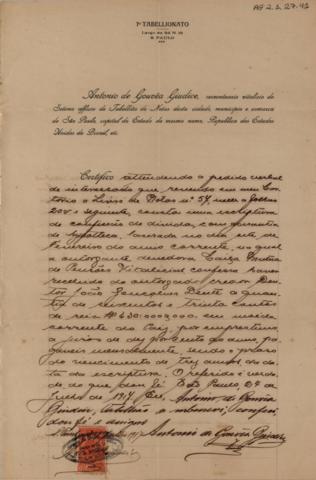 AP 2.3.27.43
7º TABELLIONATO
S. PAULO
Antonio de Gouvêa Giudice, serventuario vitalicio do
Setimo officio de Tabellião de Notas desta cidade, municipio e comarca
de São Paulo, capital do Estado do mesmo nome, Republica dos Estados
Unidos do Brasil, etc.
Certifico attendendo a pedido verbal
de interessado que, revendo em meu Car-
torio o Livro de Notas nº 57, nelle a folhas
200 e seguinte, consta uma escriptura
de confissão de divida, com garantia
de hypotheca, lavrada no dia de
Fevereiro do anno corrente, na qual
a outorgante devedora Caixa Mutua
de Pensões Vitalicias confessa haver
recebido do outorgado credor Dou-
tor João Gonçalves Dente a quan-
tia de e Trinta Contos
de reis em moeda
corrente do Paiz, por emprestimo,
a juros de dez por cento ao anno, pa-
gaveis mensalmente, sendo o prazo
do vencimento de tres annos da da-
ta da escriptura. O referido é verda-
de do que dou fé. São Paulo, 24 de
Julho de 1917. Eu, Antonio de Gouvêa
Giudice, Tabellião a subscrevi, conferi,
dou fé e assigno
Antonio de Gouvêa Giudice